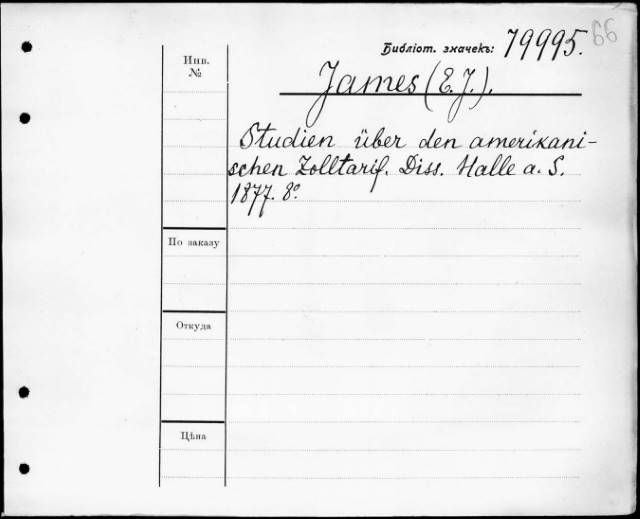 66
Библіот. значекъ: 79995.
Инв.
№
James (E. J.).
Studien über den amerikani-
schen Zolltarif. Diss. Halle a. S.
1877. 8º.
По заказу
Откуда
Цѣна